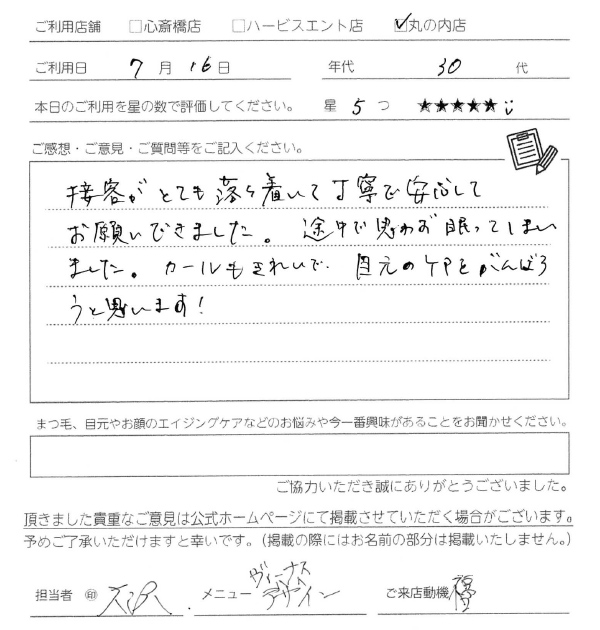 ご利用店舗 □心斎橋店 □ハービスエント店 ☑丸の内店
ご利用日 7 月 16 日 年代 30 代
本日のご利用を星の数で評価してください。 星 5 つ ★★★★★
ご感想・ご意見・ご質問等をご記入ください。
接客がとても落ち着いて丁寧で安心して
お願いできました。途中で思わず眠ってしまい
ました。カールもきれいで、目元のケアをがんばろ
うと思います!
まつ毛、目元やお顔のエイジングケアなどのお悩みや今一番興味があることをお聞かせください。
ご協力いただき誠にありがとうございました。
頂きました貴重なご意見は公式ホームページにて掲載させていただく場合がございます。
予めご了承いただけますと幸いです。(掲載の際にはお名前の部分は掲載いたしません。)
担当者 ㊞ メニュー ヴィーナスデザイン ご来店動機